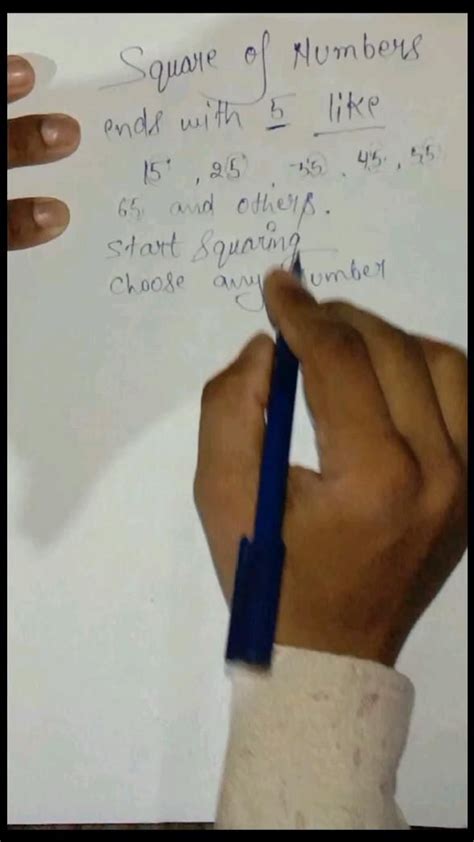 Square of Numbers
ends with 5 like
15, 25, 35, 45, 55
65 and others.
Start Squaring
Choose any Number